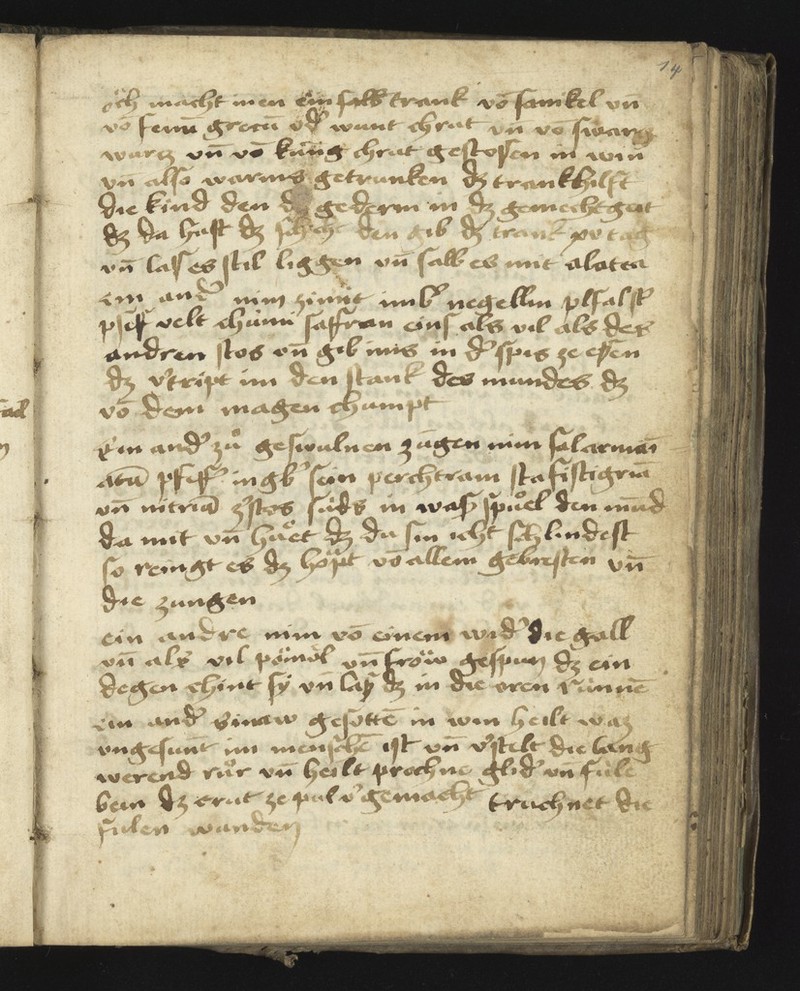 14
öch macht men ein salb trank võ sanikel vn̄
võ fenū grecū od᷑ wunt chrut vn̄ võ swarcz
wurcz vn̄ võ küng chrut gestossen in win
vn̄ also warms getrunken dz trank hilft
die kind den dz gederm in dz gemecht gat
dz da haſt dz den gib dz trank xv tag
vn̄ las es stil liggen vn̄ salb es mit alatea
ein and᷑ nim zimit imb᷑ negellin
pfeff velt chümi saffran eins als vil als des
andren stos vn̄ gib ims in d᷑ spis ze essen
dz v᷑tript im den stank des mundes dz
võ dem magen chumpt
Ein and᷑ zů geswulnen zungen nim salarmani
atū pfeff᷑ ingb᷑ sein perchtram stafisigriā
vn̄ nitrū z᷑stos süds in wass᷑ spůel den mūd
da mit vn̄ hůet dz du sin icht schlindest
so reingt es dz höpt võ allem gebresten vn̄
die zungen
ein andre nim võ einem wid᷑ die gall
vn̄ als vil pömöl vn̄ fröw gespun dz ein
degen chint sÿ vn̄ las dz in die oren rünnē
ein and᷑ sinaw gesottē in win heilt waz
vngesunt im menschē ist vn̄ v᷑stelt die lang
werend růr vn̄ heilt prochne glid᷑ vn̄ fule
bein dz crut ze pulv᷑ gemacht truchnet die
fulen wunden